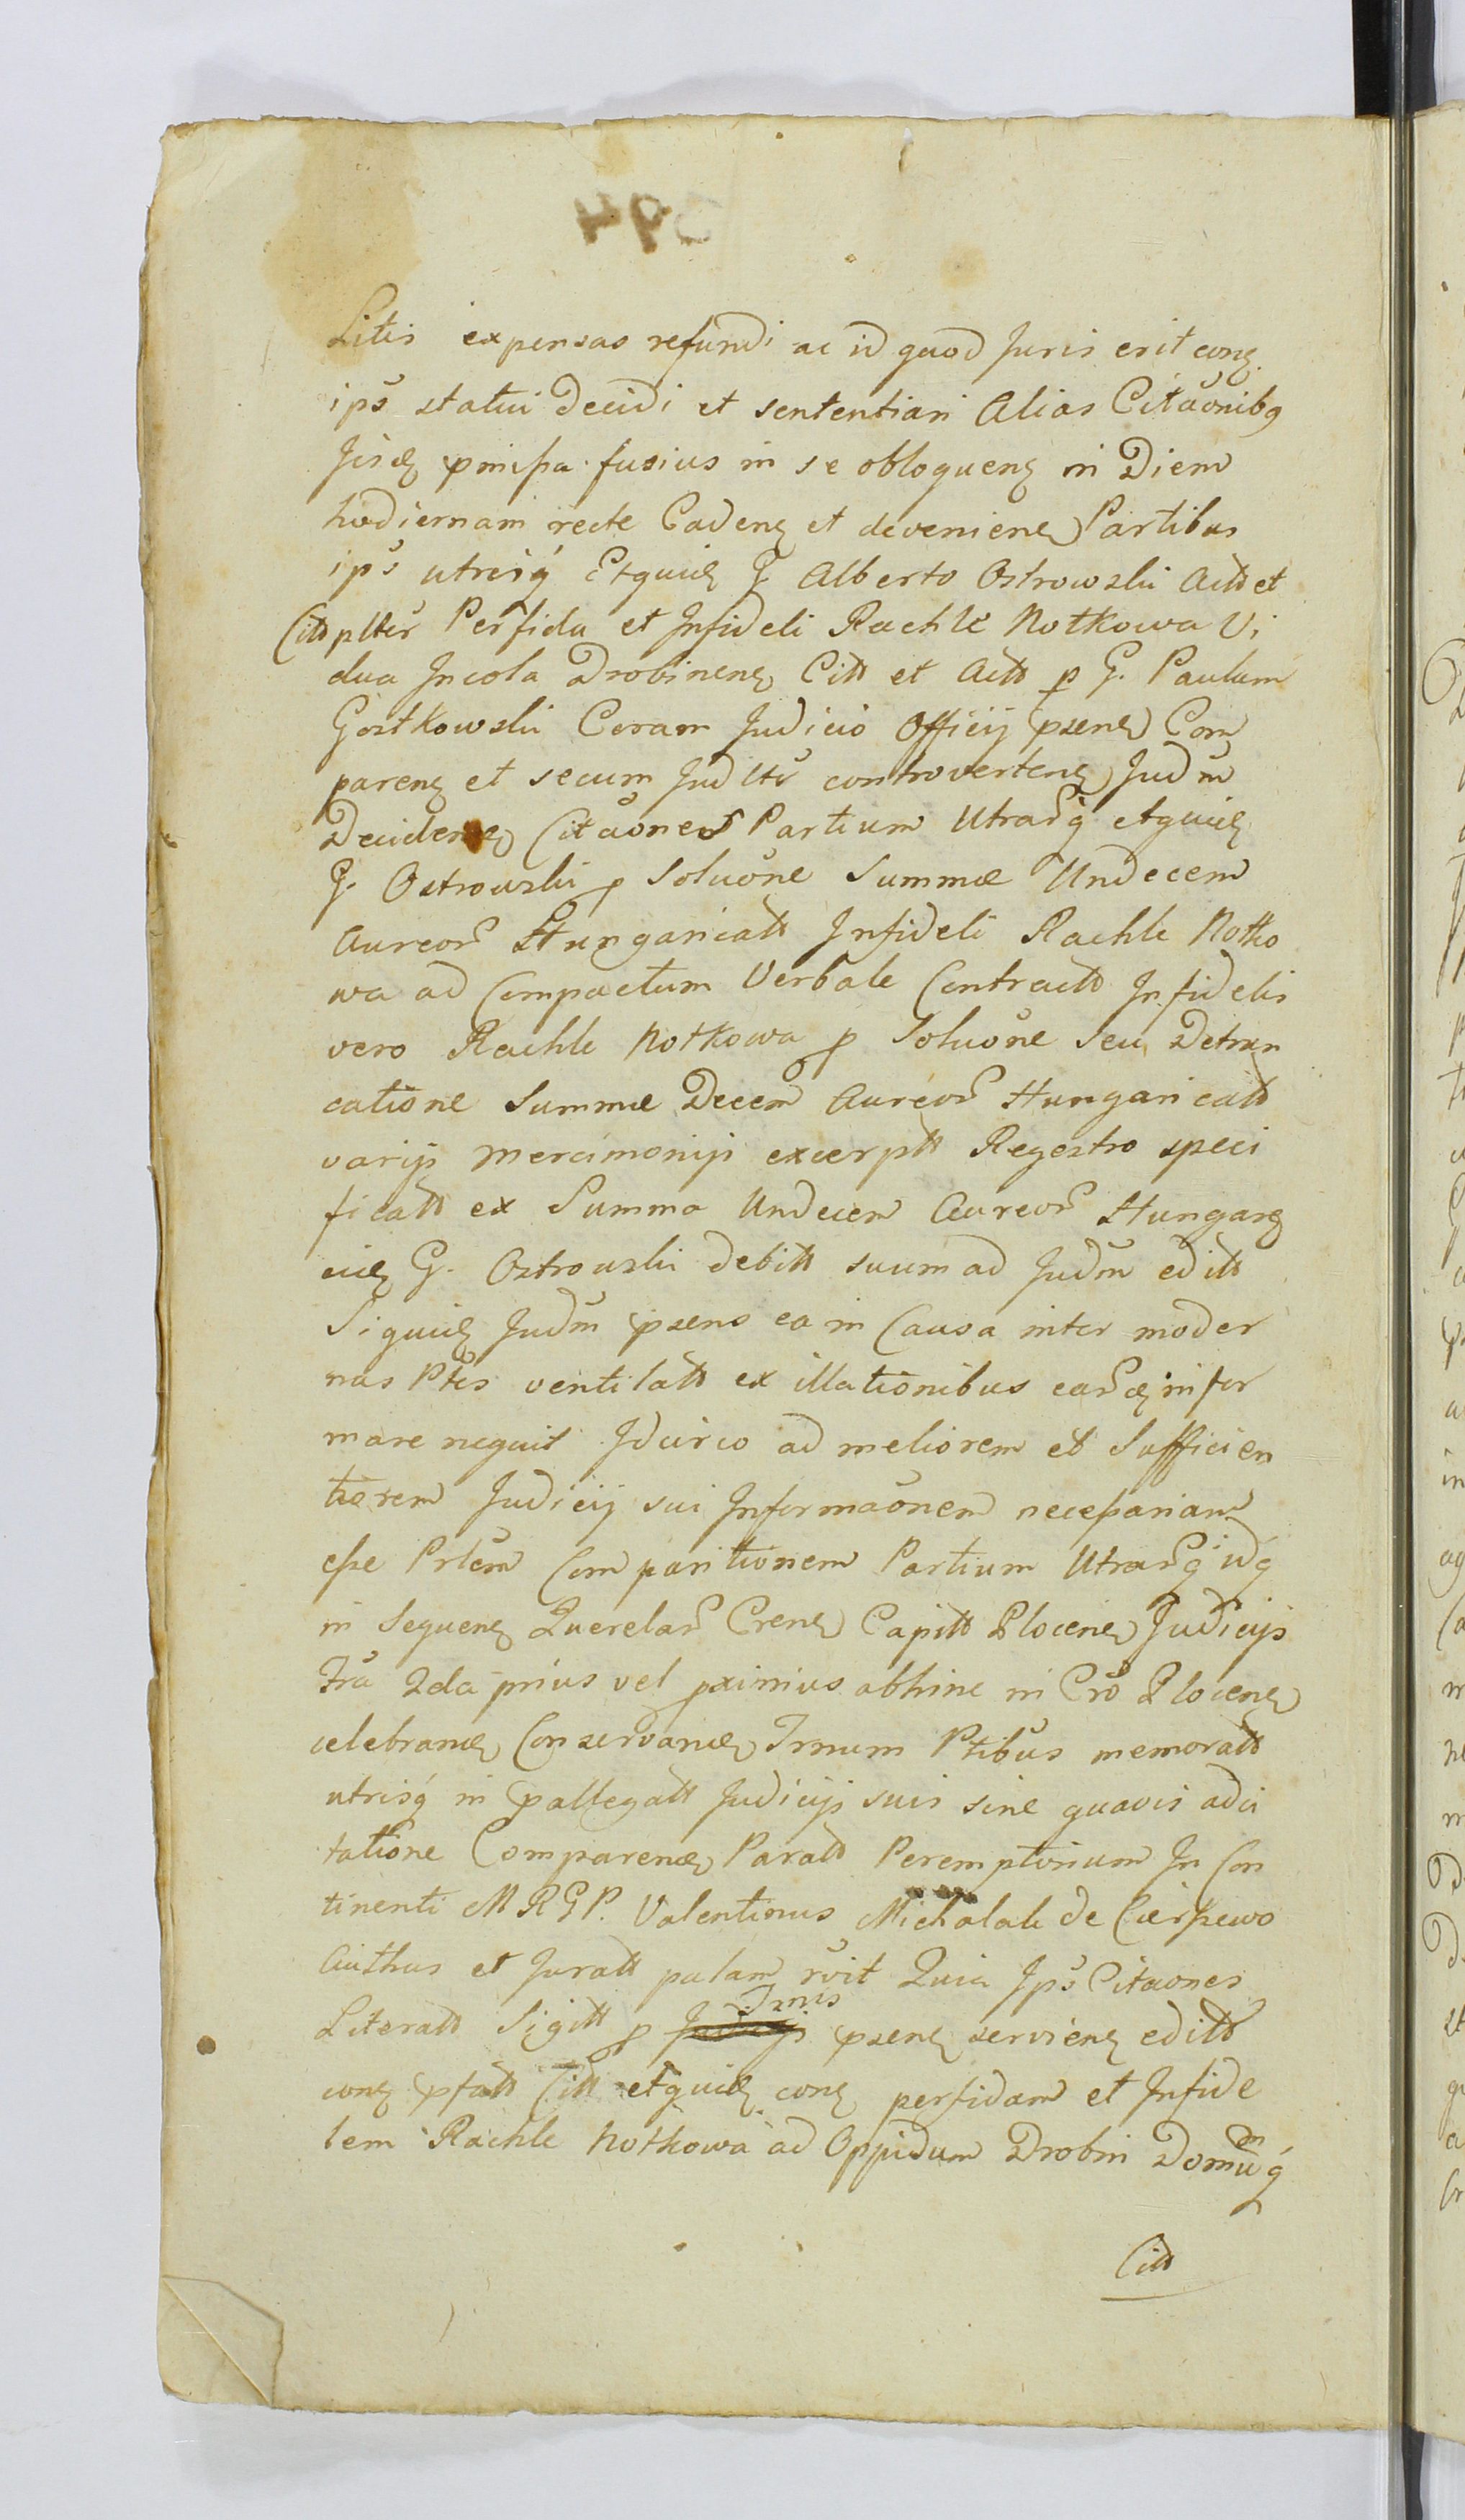 394
Litis expensas refundi ac id quod Juris erit conz
ips̃ statui Decidi et sententiari Alias Citaõnibq
pmissa fusius in se obloquenz in Diem
hodiernam recte Cadenz et devenienz Partibus
ips̃ utrisq́ Etquidz G. Alberto Ostrowski Actt et
Citt pltr̃ Perfida et Infideli Rachlè Notkowa Vi
dua Incola Drobinenz Citt et Actt p G. Paulum
Gostkowski Coram Judicio Officij psenz Com
parenz et secum Judltr̃ controvertenz Jud̃m
Decidenz Citaõnes Partium Utrar̃q́ etquidz
G. Ostrowski p Soluõne Summæ Undecem
Aureor̃ Hungaricatt Infideli Rachle Notko
wa ad Compactum Verbale Contractt Infidelis
vero Rachle Notkowa p Soluõne Seu Detrun
catione Summæ Decem Aureor̃ Hungaricatt
varijs Mercimonijs excerptt Regestro speci
ficatt ex Summa Undecem Aureor̃ Hungarz
G. Ostrowski debitt suum ad Jud̃m editt
Siquidz Jud̃m psens ea in Causa inter moder
nas Ptes ventilatt ex illationibus infor
mare nequit Idcirco ad meliorem et Sufficien
tiorem Judicij sui Informaõnem necessariam
esse Prlem Comparitionem Partium Utrar̃q́ idq́
in Sequenz Querelar̃ Crenz Capitt Plocenz Judicijs
Fra 2da prius vel pximius abhinc in Cro Plocenz
celebranz Conservanz Trnum Ptibus memoratt
utrisq́ in pallegatt Judicijs suis sine quavis adci
tatione Comparenz Paratt Peremptorium In Con
tinenti MRGP. Valentinus Michalak de Cierszewo
Authus et Juratt palam rc̃vit Quia Ips̃ Citaones
Literatt Sigitt p Trnis psenz servienz editt
conz pfatt Citt etquidz conz perfidam et Infide
lem Rachle Notkowa ad Oppidum Drobin Domumq́
Citt